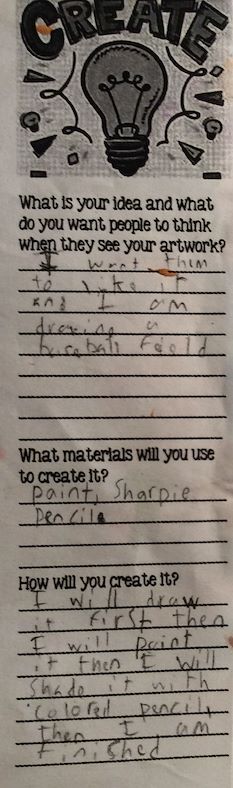 CREATE
What is your idea and what
do you want people to think
when they see your artwork?
I want them
to like it
and I am
drawing a
baseball field
What materials will you use
to create it?
paint, Sharpie
pencils
How will you create it?
I will draw
it first then
I will paint
it then I will
shade it with
colored pencil,
then I am
finished